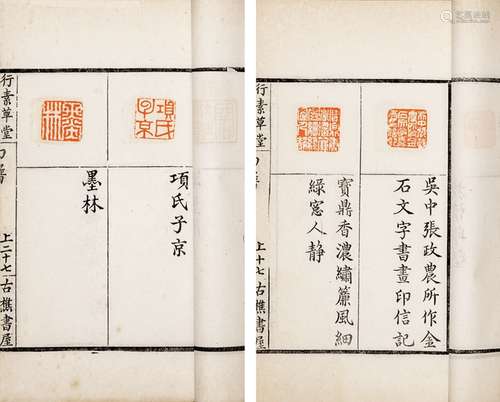 項氏子京
項氏
子京
墨林
墨林
行素草堂
印譜
上二十七
古樵書屋
吳中張政農所作金
石文字書畫印信記
寶鼎香濃繡簾風細
綠窻人静
行素草堂
印譜
上十七
古樵書屋